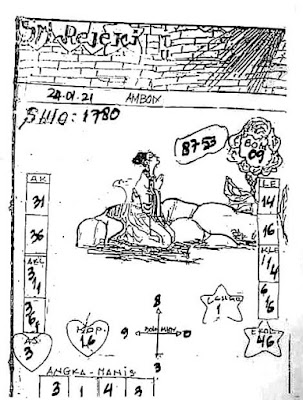 Sri Rejeki
24.01.21 AMBON
SHIO: 1780
87-53
BOM
09
AK
31
36
AKL
3/1
3/6/1
AS
3
LE
14
16
KLE
1/4
6/6
EKOR
46
KOP
16
8
9
0
3
1
ANGKA-MANIS
3 1 4 3